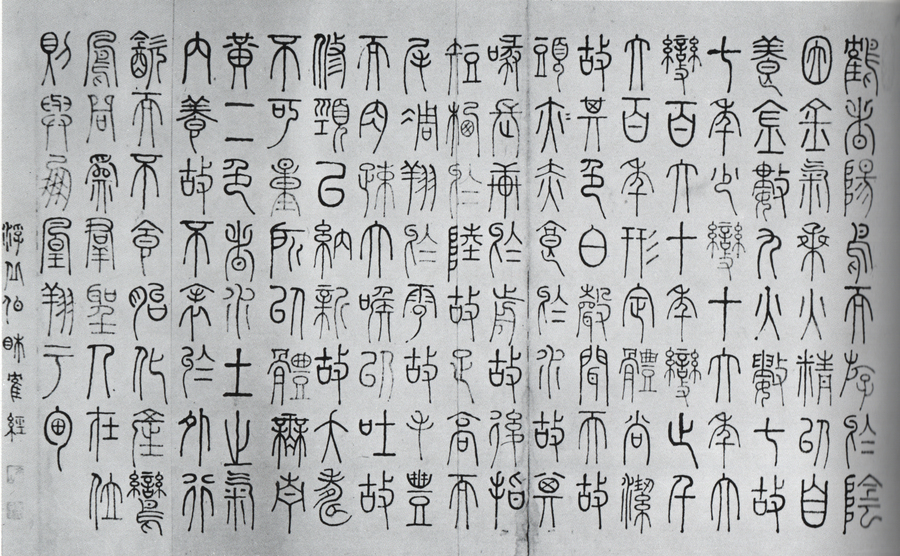 鶴者陽鳥而游於陰
因金氣乘火精以自
養金數九火數七故
七年少變十六年大
變百六十年變止千
六百年形定體尚潔
故其色白聲聞天故
頭赤食於水故其
喙長軒於前故後指
短棲於陸故足高而
尾凋翔於雲故毛豐
而肉疎大喉以吐故
修頸以納新故大壽
不可量所以體無青
黃二色者水土之氣
內養故不表於外行
飲而不食胎化產鸞
鳳同為群聖人在位
則與鳳凰翔于甸
浮丘伯相隺經